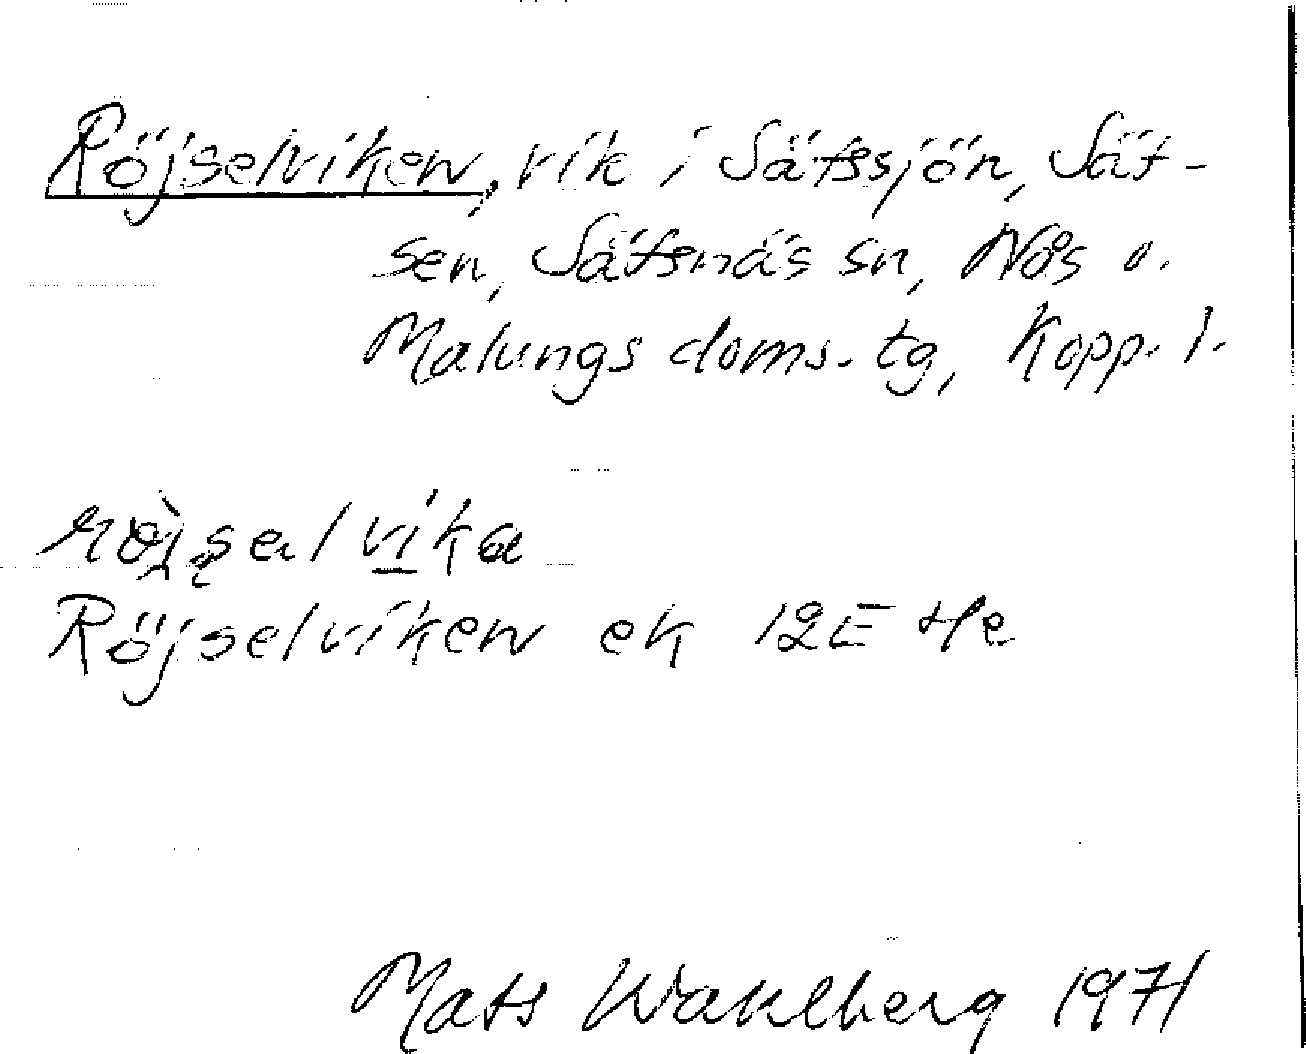 Röjselviken, vik i Sätssjön, Sät-
sen, Sätsnäs sn, Nås o.
Malungs doms. tg, Kopp. l.
Röjselviken ek 12E 4e
Mats Wahlberg 1971